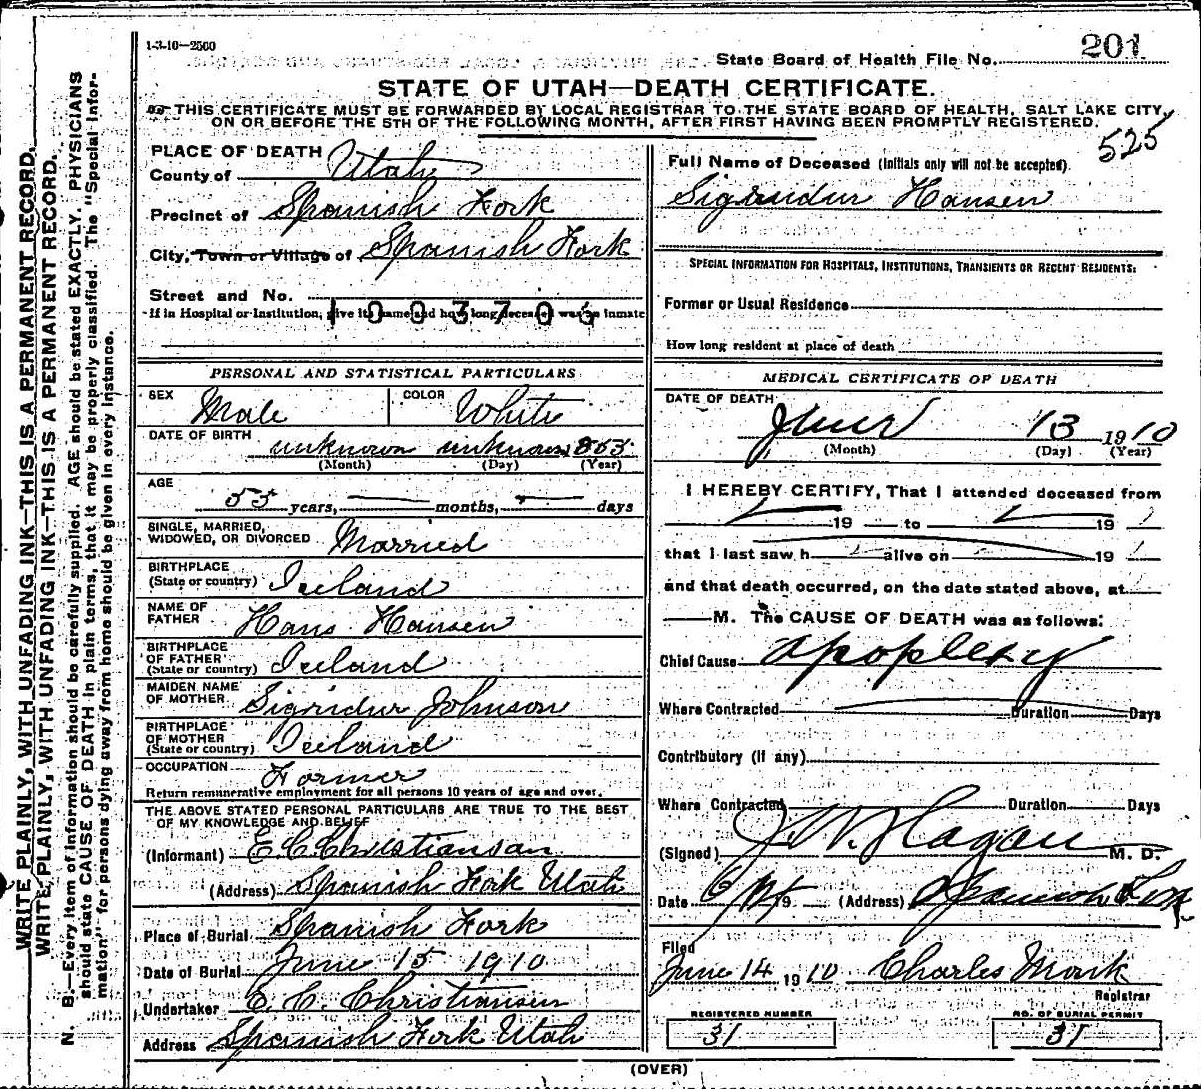 1-3-10—2500
State Board of Health File No. 201
STATE OF UTAH—DEATH CERTIFICATE.
THIS CERTIFICATE MUST BE FORWARDED BY LOCAL REGISTRAR TO THE STATE BOARD OF HEALTH, SALT LAKE CITY,
ON OR BEFORE THE 5TH OF THE FOLLOWING MONTH, AFTER FIRST HAVING BEEN PROMPTLY REGISTERED.
525
WRITE PLAINLY, WITH UNFADING INK—THIS IS A PERMANENT RECORD.
WRITE PLAINLY, WITH UNFADING INK—THIS IS A PERMANENT RECORD.
N. B.—Every item of information should be carefully supplied. AGE should be stated EXACTLY. PHYSICIANS
should state CAUSE OF DEATH in plain terms, that it may be properly classified. The "Special Infor-
mation" for persons dying away from home should be given in every instance.
PLACE OF DEATH
County of Utah
Precinct of Spanish Fork
City, Town or Village of Spanish Fork
Street and No.
1003705
If in Hospital or Institution, give its name and how long deceased was an inmate
PERSONAL AND STATISTICAL PARTICULARS
SEX Male COLOR White
DATE OF BIRTH unknown unknown 1855
(Month) (Day) (Year)
AGE
55 years, months, days
SINGLE, MARRIED,
WIDOWED, OR DIVORCED Married
BIRTHPLACE
(State or country) Iceland
NAME OF
FATHER Hans Hansen
BIRTHPLACE
OF FATHER
(State or country) Iceland
MAIDEN NAME
OF MOTHER Sigridur Johnson
BIRTHPLACE
OF MOTHER
(State or country) Iceland
OCCUPATION Farmer
Return remunerative employment for all persons 10 years of age and over.
THE ABOVE STATED PERSONAL PARTICULARS ARE TRUE TO THE BEST
OF MY KNOWLEDGE AND BELIEF
(Informant) E. C. Christiansen
(Address) Spanish Fork Utah
Place of Burial Spanish Fork
Date of Burial June 15 1910
Undertaker E. C. Christiansen
Address Spanish Fork Utah
Full Name of Deceased (Initials only will not be accepted).
Sigridur Hansen
SPECIAL INFORMATION FOR HOSPITALS, INSTITUTIONS, TRANSIENTS OR RECENT RESIDENTS:
Former or Usual Residence
How long resident at place of death
MEDICAL CERTIFICATE OF DEATH
DATE OF DEATH
June 13 1910
(Month) (Day) (Year)
I HEREBY CERTIFY, That I attended deceased from
19 to 19
that I last saw h alive on 19
and that death occurred, on the date stated above, at
M. The CAUSE OF DEATH was as follows:
Chief Cause apoplexy
Where Contracted Duration Days
Contributory (if any)
Where Contracted Duration Days
(Signed) J. W. Hagan M. D.
Date 19 (Address) Spanish Fork
Filed
June 14 1910 Charles Monk
Registrar
REGISTERED NUMBER NO. OF BURIAL PERMIT
31 31
(OVER)